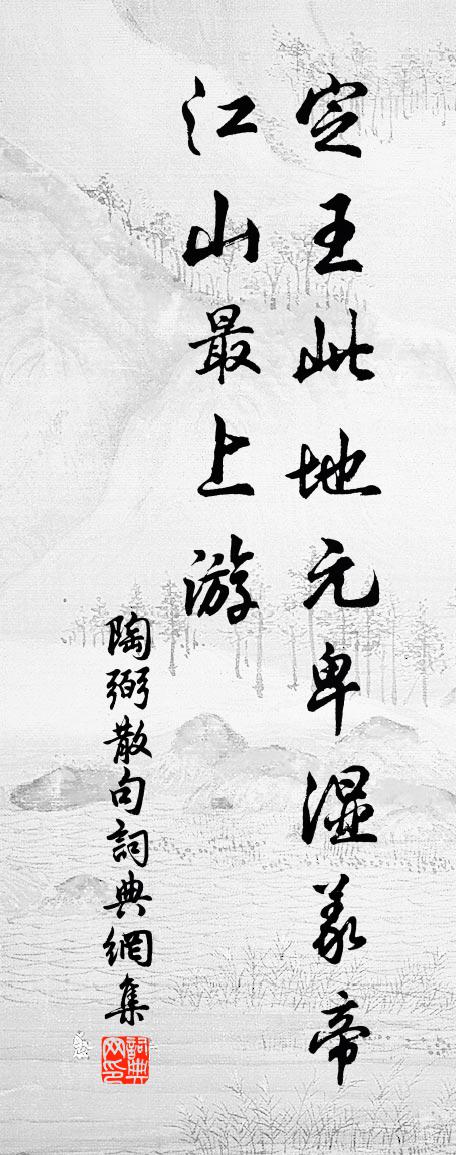 定王此地元卑濕義帝
江山最上游
陶弼散句詞典網集
詞典网印